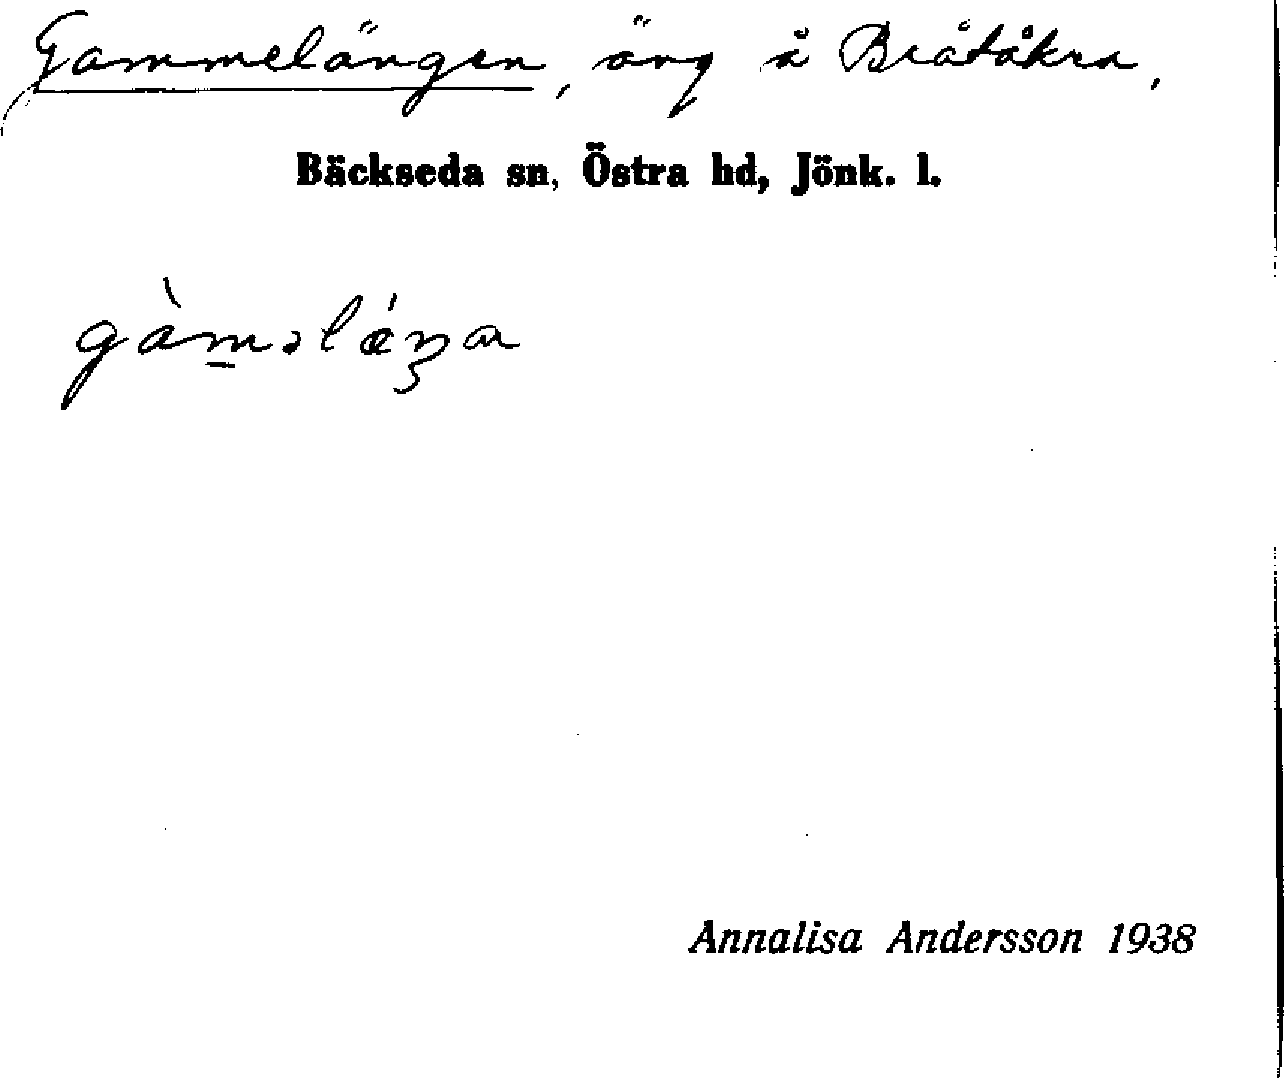 Gammelängen, äng å Bråtåkra,
Bäckseda sn, Östra hd, Jönk. l.
gàm̲əlǽŋa
Annalisa Andersson 1938